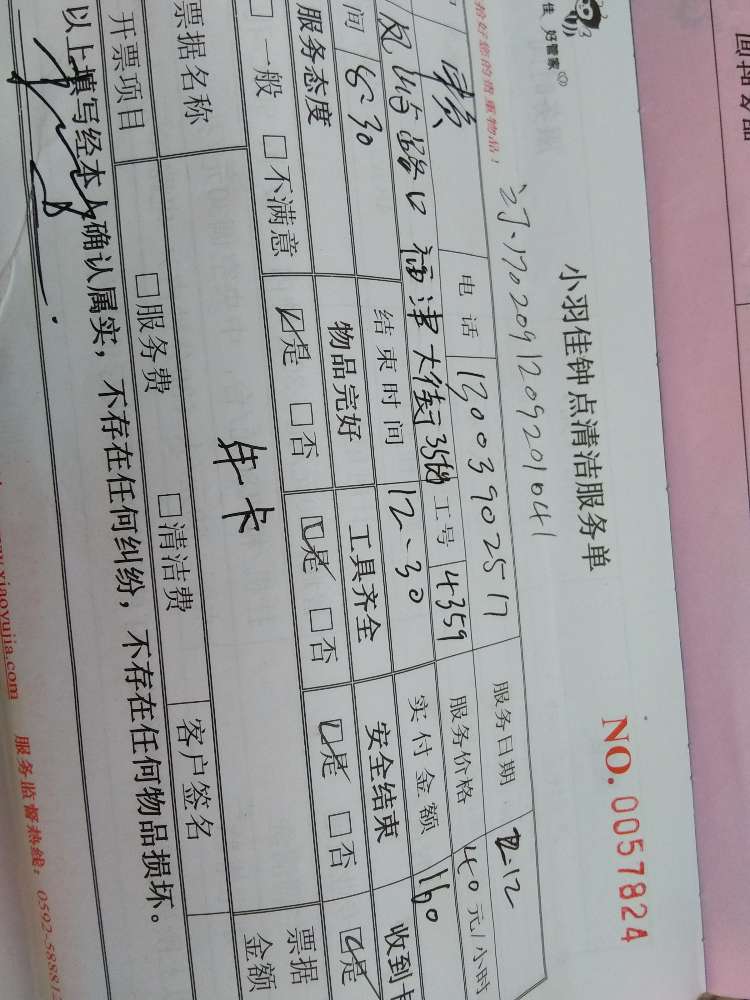 佳 好管家
小羽佳钟点清洁服务单
NO.0057824
1702091209201041
拾好您的贵重物品！
电话 13003902517 服务日期 2-12
路口 福津大街 工号 4359 服务价格 40元/小时
间 8-30 结束时间 12-30 实付金额 160
服务态度 物品完好 工具齐全 安全结束 收到卡
□一般 □不满意 ☑是 □否 ☑是 □否 ☑是 □否 ☑是
年卡
票据名称 客户签名 票据金额
开票项目 □服务费 □清洁费
以上填写经本人确认属实，不存在任何纠纷，不存在任何物品损坏。
.xiaoyujia.com 服务监督热线：0592-58881